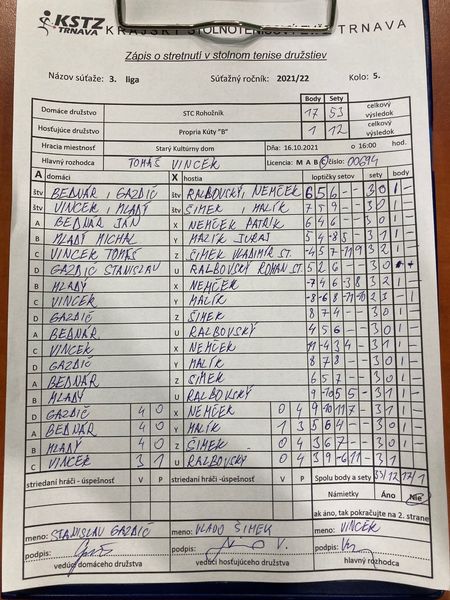 KSTZ
TRNAVA
KRAJSKÝ STOLNOTENISOVÝ TRNAVA
Zápis o stretnutí v stolnom tenise družstiev
Názov súťaže: 3. liga Súťažný ročník: 2021/22 Kolo: 5.
Body Sety celkový výsledok
Domáce družstvo STC Rohožník 17 53
Hosťujúce družstvo Propria Kúty "B" 1 12 celkový výsledok
Hracia miestnosť Starý Kultúrny dom Dňa: 16.10.2021 o 16:00 hod.
Hlavný rozhodca TOMÁŠ VINCEK Licencia: M A B C číslo: 00694
A domáci X hostia loptičky setov sety body
štv BEDNÁR, GAZDIČ štv RALBOVSKÝ, NEMČEK 6 5 6 - - 3 0 1 -
štv VINCEK, MLADÝ štv ŠIMEK, MALÍK 7 5 9 - - 3 0 1 -
A BEDNÁR JÁN X NEMČEK PATRIK 6 4 6 - - 3 0 1 -
B MLADÝ MICHAL Y MALÍK JURAJ 5 4 -8 5 - 3 1 1 -
C VINCEK TOMÁŠ Z ŠIMEK VLADIMÍR ST. 3 2 1 -
D GAZDIČ STANISLAV U RALBOVSKÝ ROMAN ST. 5 2 6 - - 3 0
B MLADÝ X NEMČEK -7 4 6 -3 8 3 2 1 -
C VINCEK Y MALÍK -8 -6 8 2 3 - 1
D GAZDIČ Z ŠIMEK 8 7 4 - - 3 0 1 -
A BEDNÁR U RALBOVSKÝ 4 5 6 - - 3 0 1 -
C VINCEK X NEMČEK 11 -4 3 4 - 3 1 1 -
D GAZDIČ Y MALÍK 8 7 8 - - 3 0 1 -
A BEDNÁR Z ŠIMEK 6 5 7 - - 3 0 1 -
B MLADÝ U RALBOVSKÝ 9 -10 5 5 - 3 1 1 -
D GAZDIČ 4 0 X NEMČEK 0 4 9 -10 11 7 - 3 1 1 -
A BEDNÁR 4 0 Y MALÍK 1 3 5 6 4 - - 3 0 1 -
B MLADÝ 4 0 Z ŠIMEK 0 4 3 6 7 - - 3 0 1
C VINCEK 3 1 U RALBOVSKÝ 0 4 3 9 -6 11 - 3 1
striedaní hráči - úspešnosť V P striedaní hráči - úspešnosť V P Spolu body a sety 53/12 17/1
Námietky Áno Nie
ak áno, tak pokračujte na 2. strane
meno: STANISLAV GAZDIČ meno: VLADO ŠIMEK meno: VINCEK
podpis: podpis: podpis:
vedúci domáceho družstva vedúci hosťujúceho družstva hlavný rozhodca